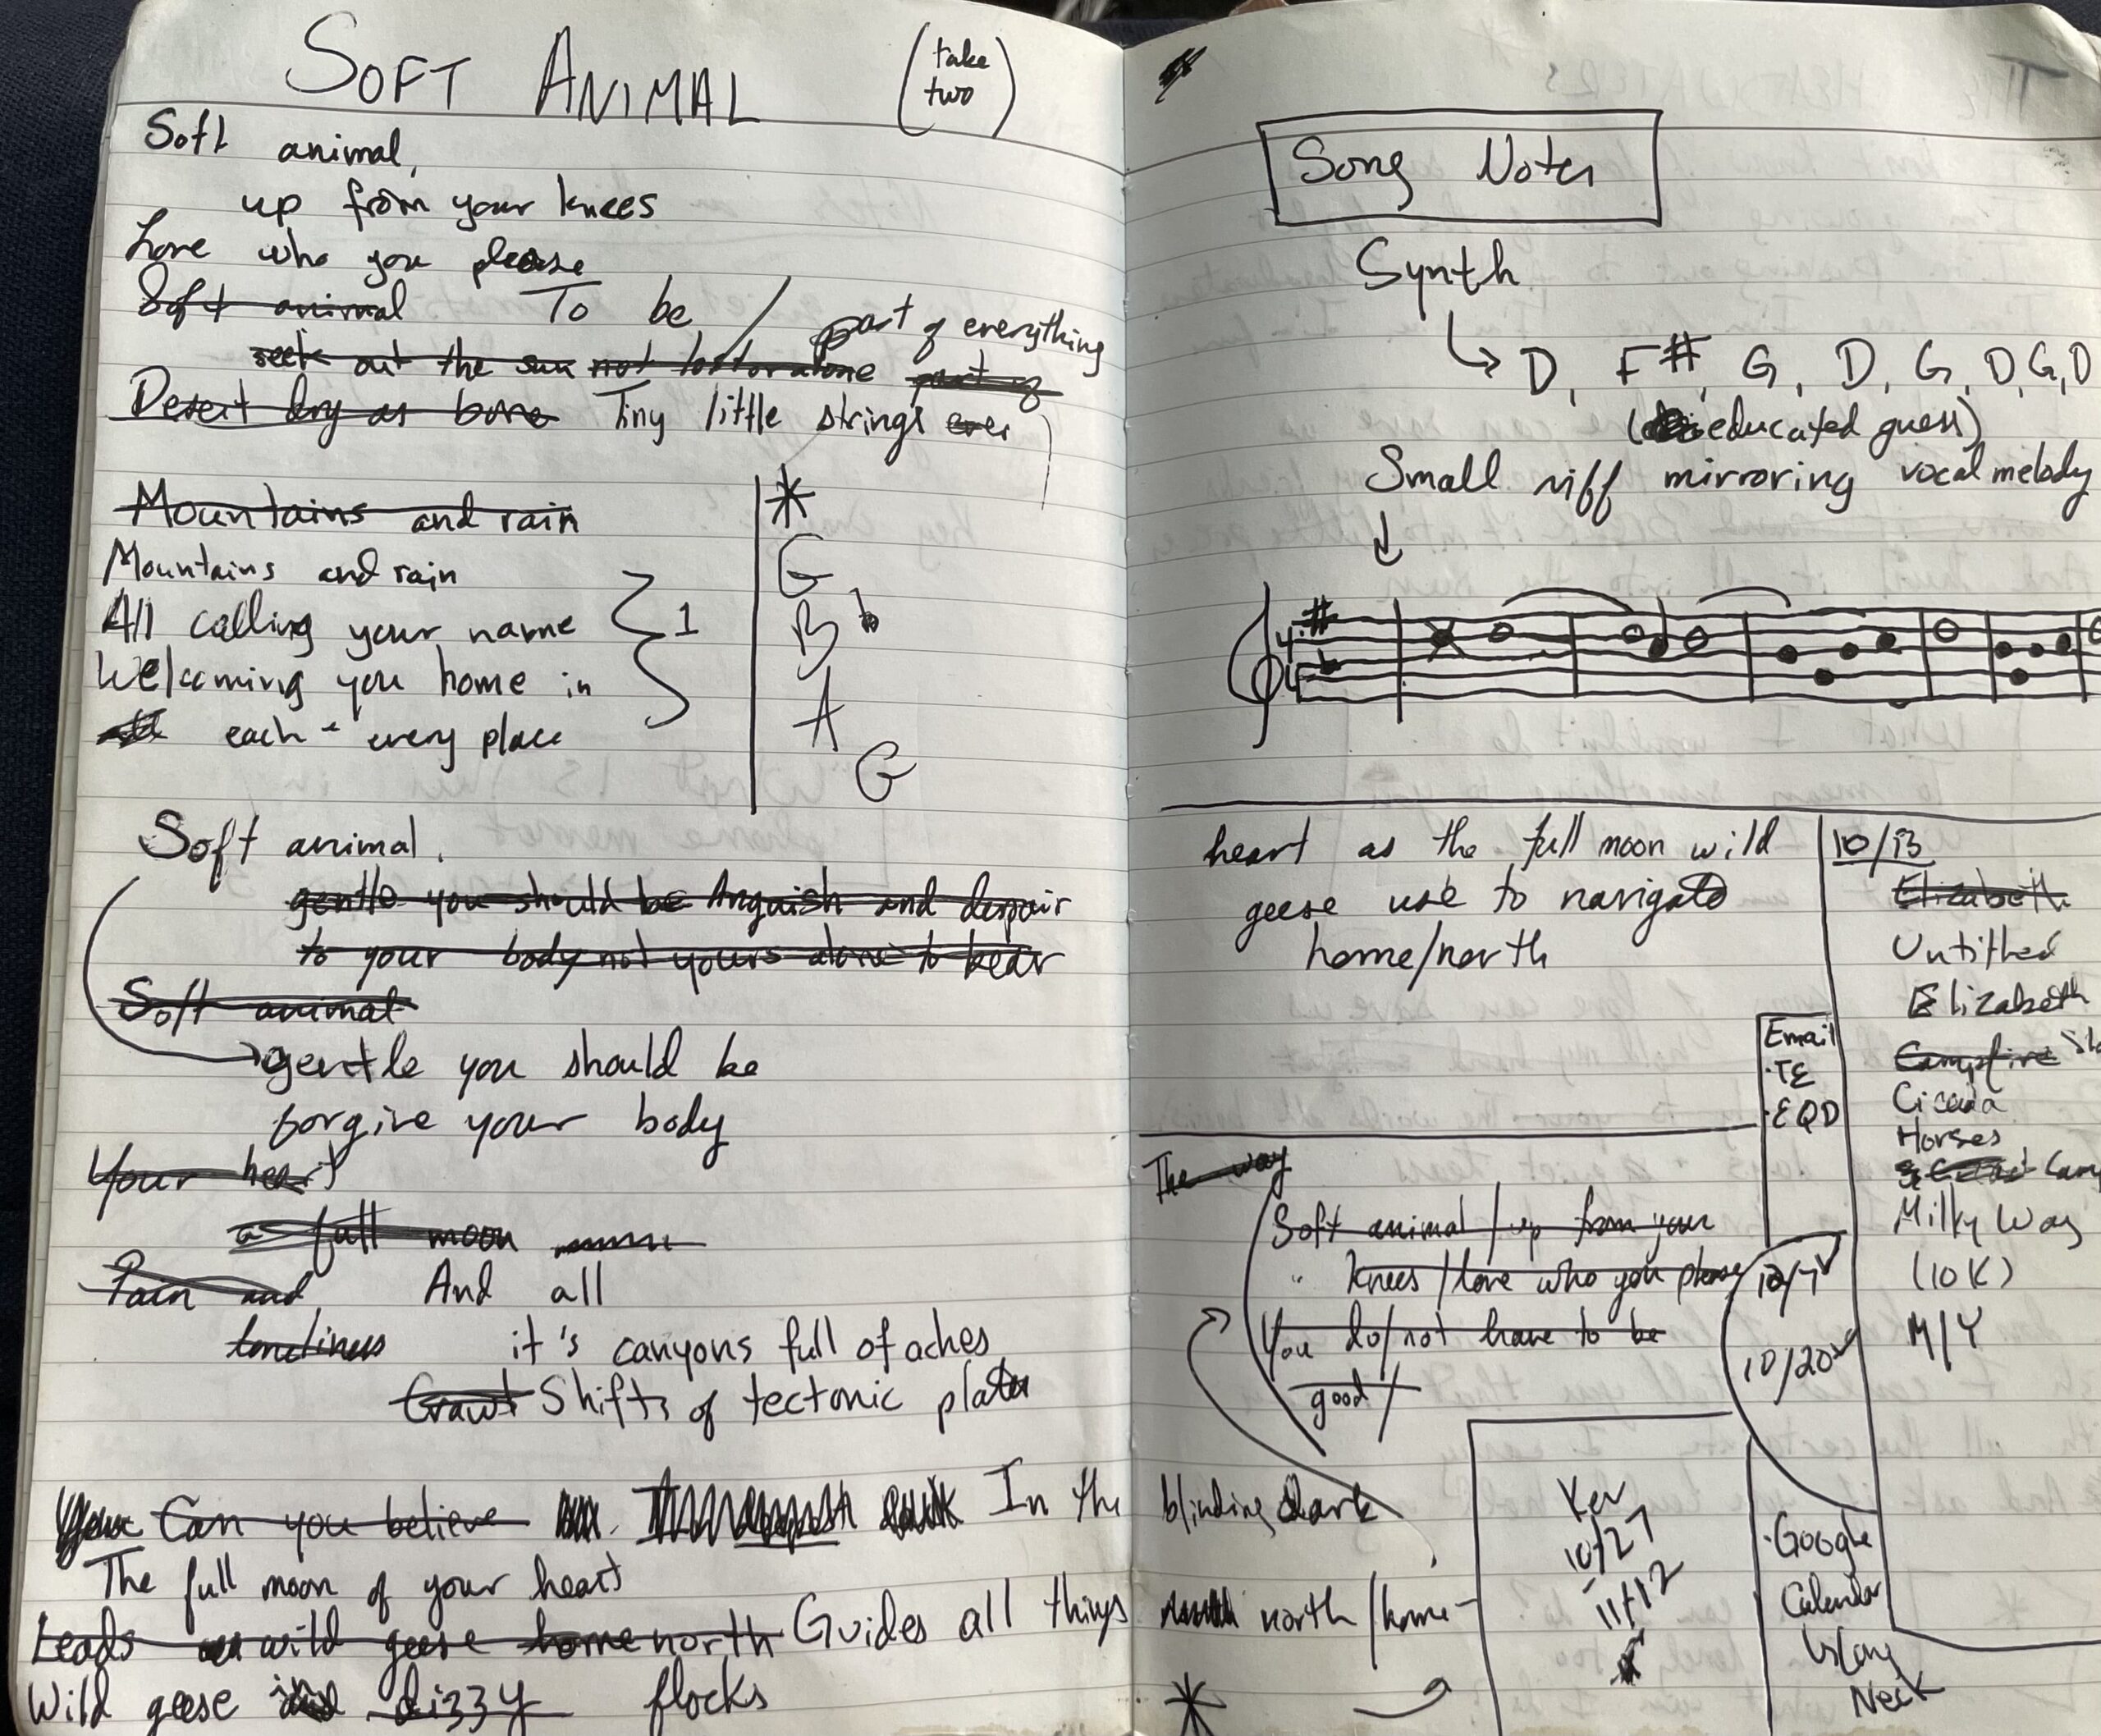 SOFT ANIMAL (take two)
Soft animal,
up from your knees
Love who you please
Soft animal To be /
part of everything
seek out the sun not lost or alone part of
Desert dry as bone Tiny little strings
Mountains and rain
Mountains and rain
All calling your name
Welcoming you home in
each + every place
1
*
G
B♭
A
G
Soft animal,
gentle you should be Anguish and despair
to your body not yours alone to bear
Soft animal
gentle you should be
forgive your body
Your heart
as full moon
Pain and And all
loneliness it's canyons full of aches
Shifts of tectonic plates
Your Can you believe In the blinding dark
The full moon of your heart
Leads wild geese home north Guides all things north/home
Wild geese in dizzy flocks
Song Notes
Synth
D, F#, G, D, G, D, G, D
(educated guess)
Small riff mirroring vocal melody
#
4
4
heart as the full moon wild
geese use to navigate
home/north
10/13
Elizabeth
Untitled
Elizabeth
Campfire
Cicada
Horses
Milky Way
(10K)
M/Y
Email
·TE
·EQD
The way
Soft animal / up from your
knees / love who you please
You do/not have to be
good /
10/7
10/20
Kev
10/27
11/12
·Google
Calendar
Neck
*